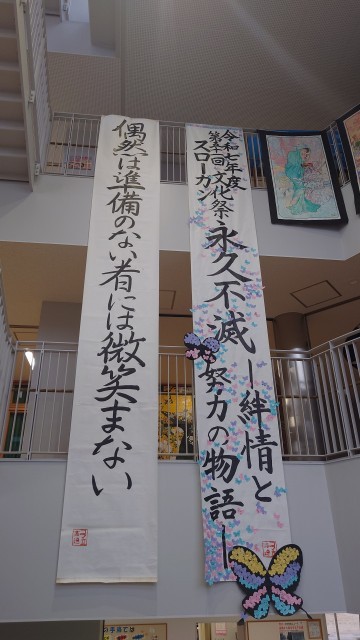 令和七年度
第十一回 文化祭
スローガン
永久不滅
ー絆情と
努力の物語ー
偶然は準備のない者には微笑まない